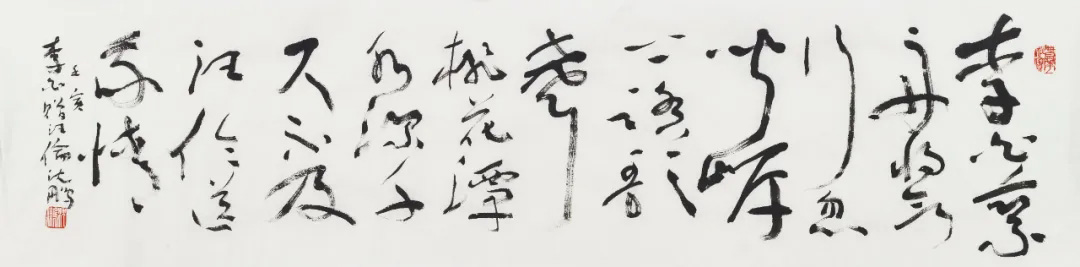 李白乘
舟将欲
行忽
聞岸
上踏歌
聲
桃花潭
水深千
尺不及
汪倫送
我情
壬寅
李白贈汪倫沈鵬